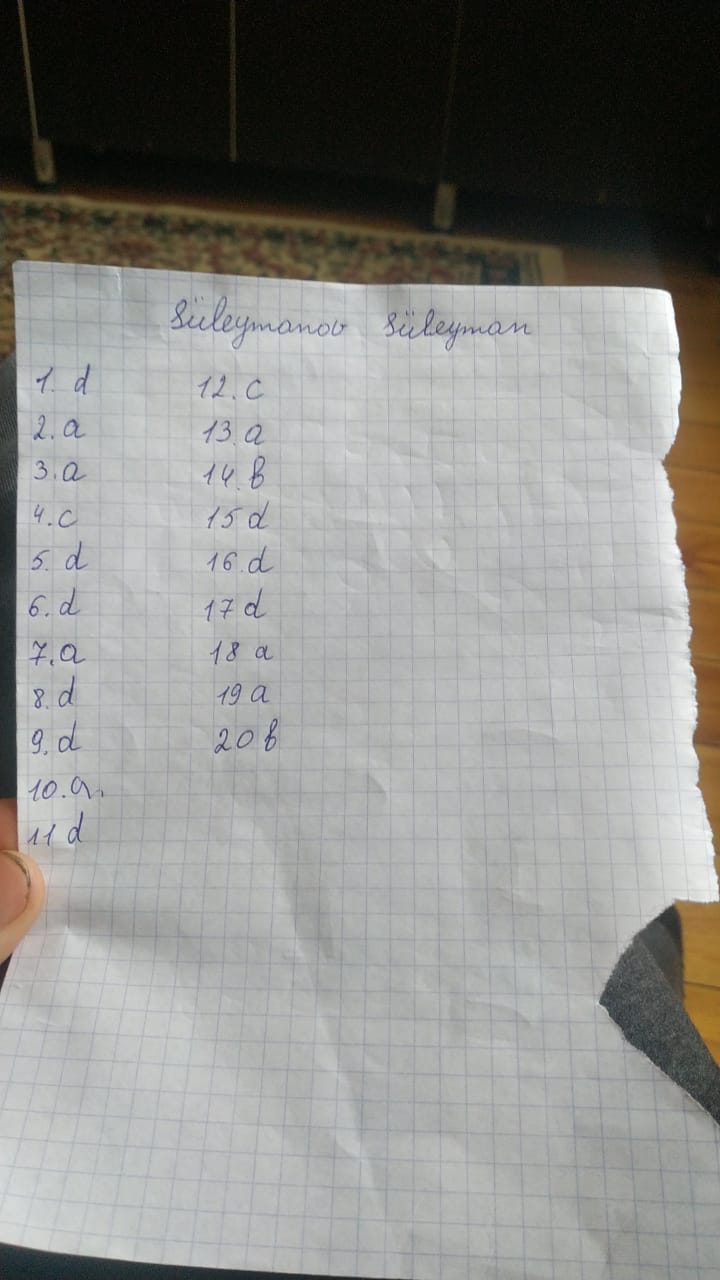 Süleymanov Süleyman
1. d
2. a
3. a
4. c
5. d
6. d
7. a
8. d
9. d
10. a.
11 d
12. c
13. a
14. b
15 d
16. d
17 d
18 a
19 a
20 b